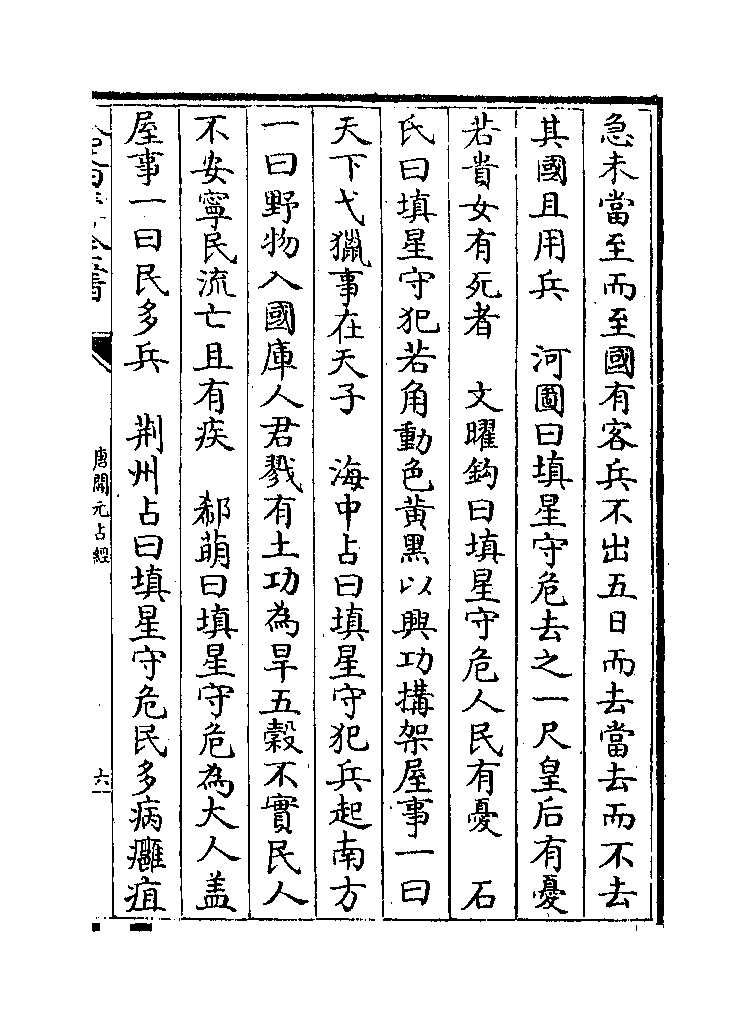 急未當至而至國有客兵不出五日而去當去而不去
其國且用兵　河圖曰填星守危去之一尺皇后有憂
若貴女有死者　文曜鈎曰填星守危人民有憂　石
氏曰填星守犯若角動色黃黑以興功搆架屋事一曰
天下弋獵事在天子　海中占曰填星守犯兵起南方
一曰野物入國庫人君戮有土功為旱五穀不實民人
不安寧民流亡且有疾　郗萌曰填星守危為大人盖
屋事一曰民多兵　荆州占曰填星守危民多病癰疽
唐開元占經
六